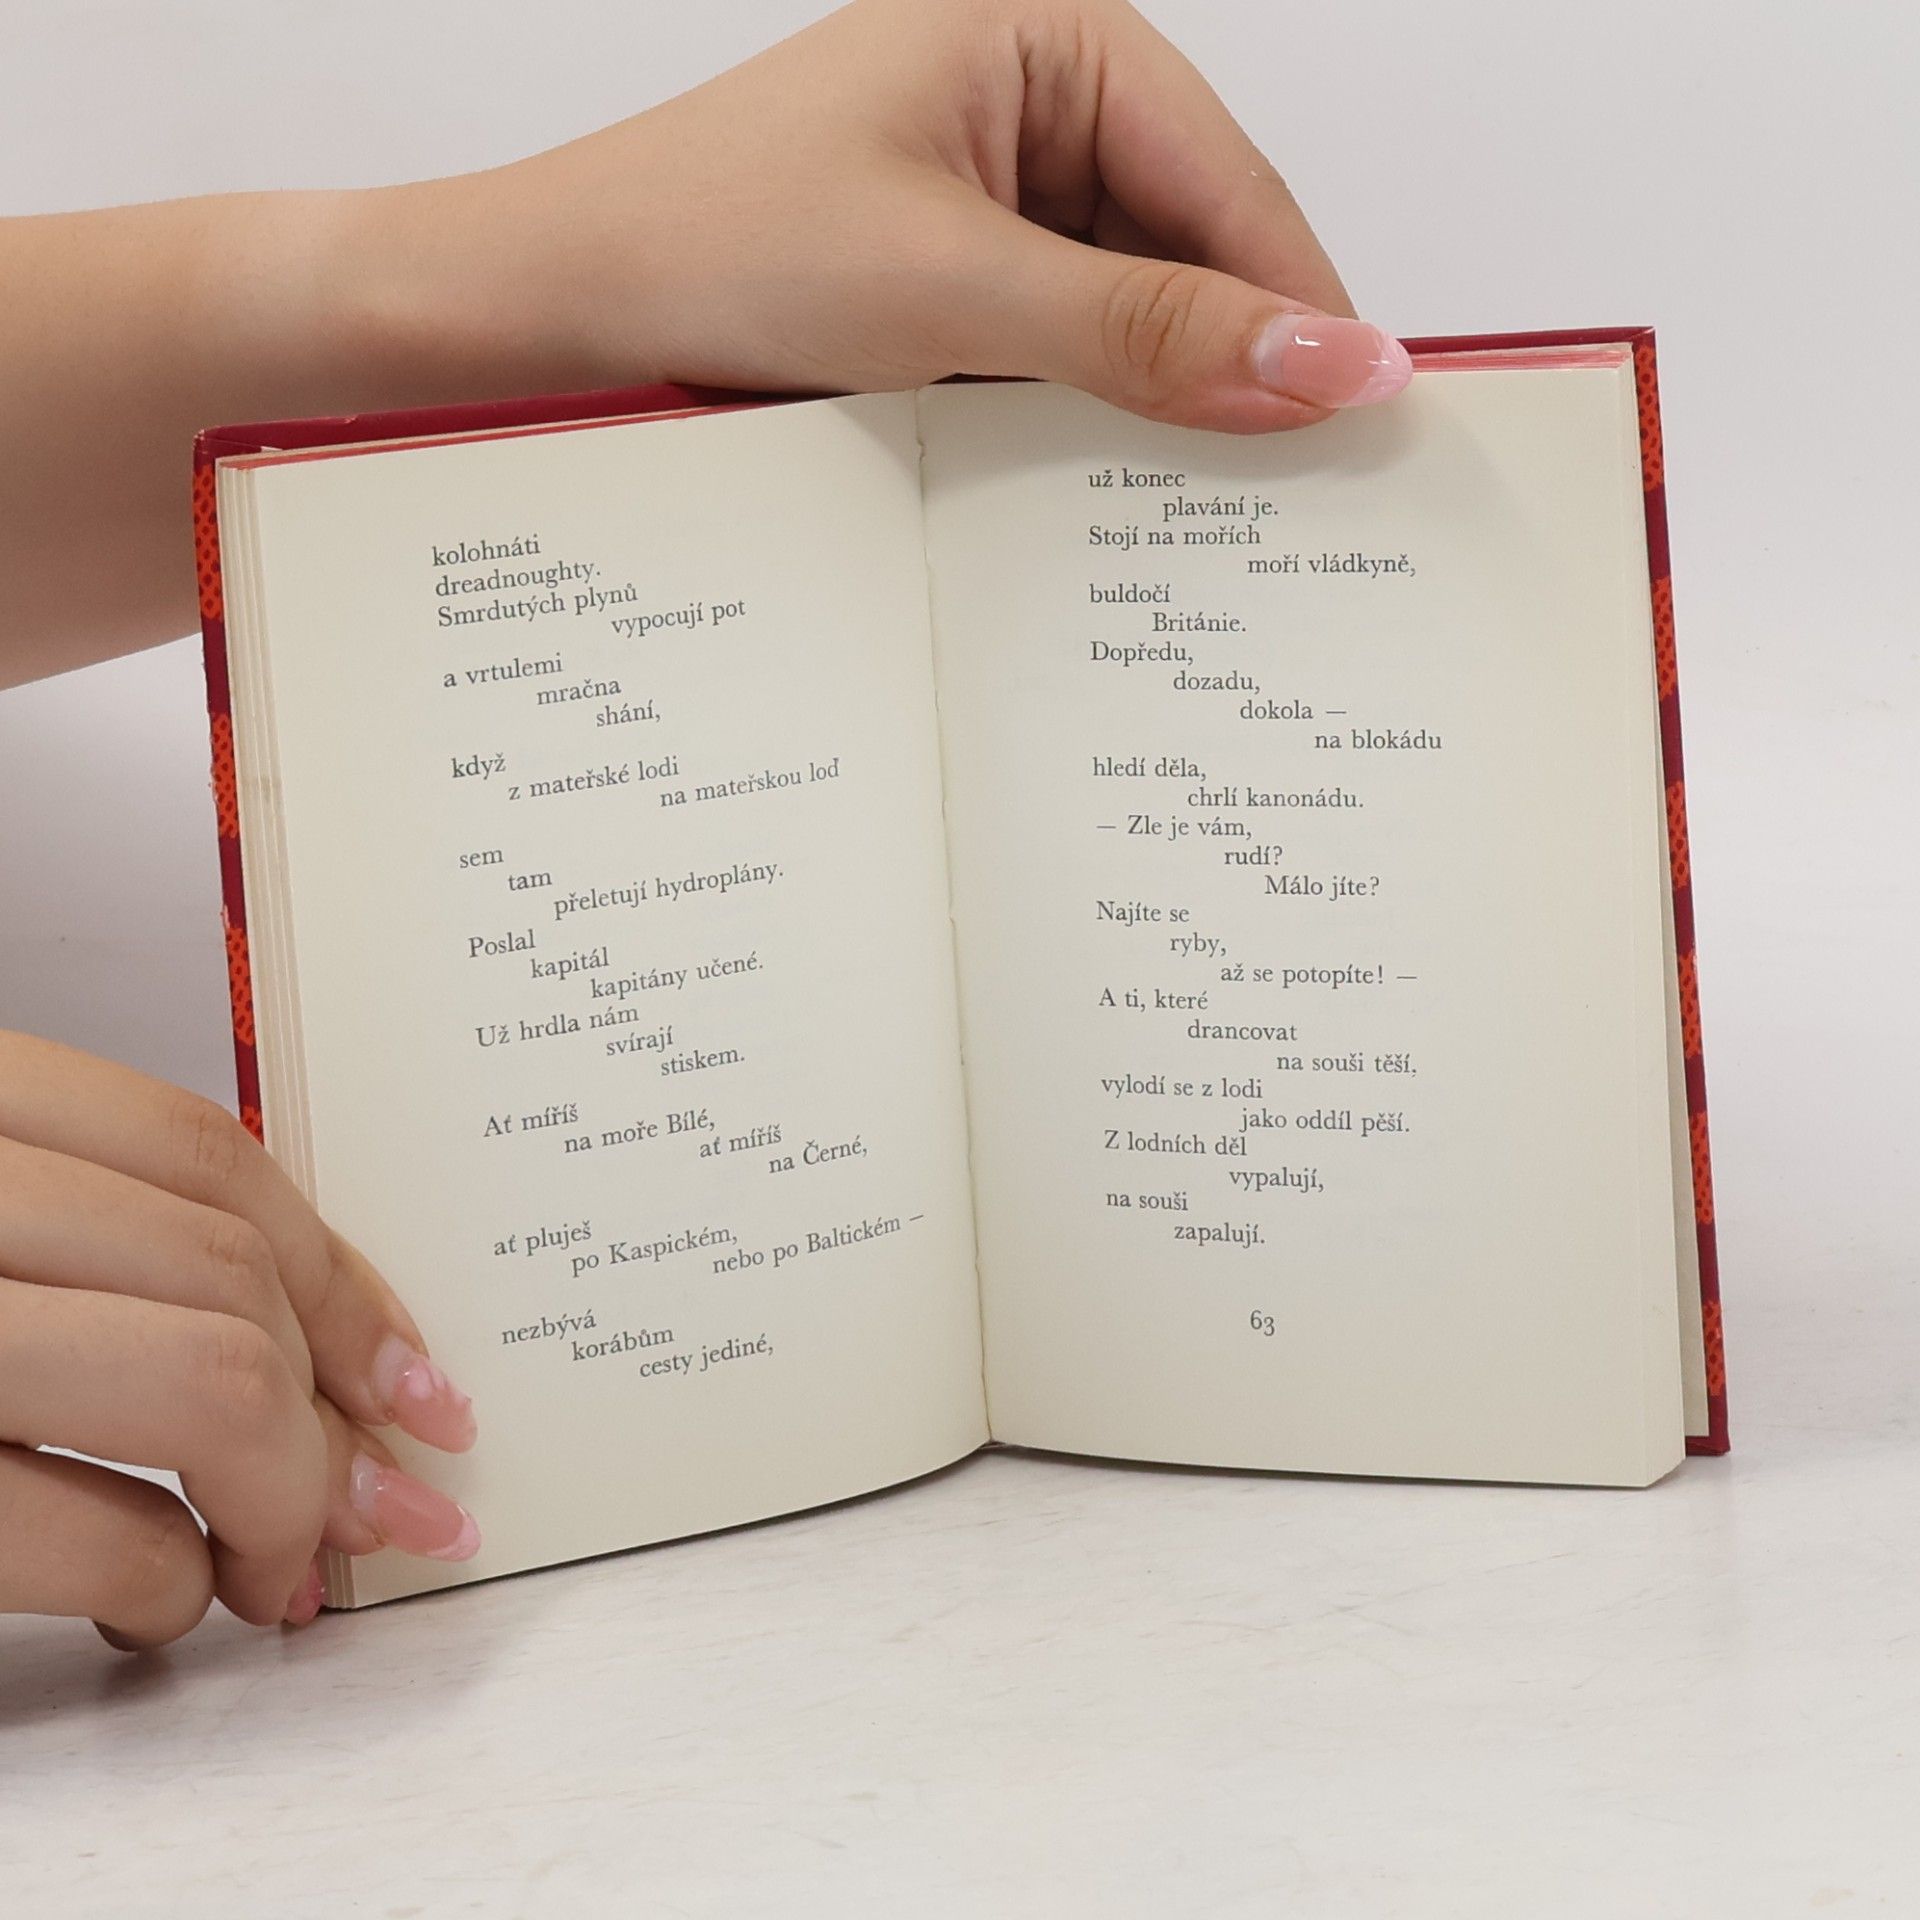 kolohnáti
dreadnoughty.
Smrdutých plynů
vypocují pot
a vrtulemi
mračna
shání,
když
z mateřské lodi
na mateřskou loď
sem
tam
přeletují hydroplány.
Poslal
kapitál
kapitány učené.
Už hrdla nám
svírají
stiskem.
Ať míříš
na moře Bílé,
ať míříš
na Černé,
ať pluješ
po Kaspickém,
nebo po Baltickém –
nezbývá
korábům
cesty jediné,
už konec
plavání je.
Stojí na mořích
moří vládkyně,
buldočí
Británie.
Dopředu,
dozadu,
dokola —
na blokádu
hledí děla,
chrlí kanonádu.
— Zle je vám,
rudí?
Málo jíte?
Najíte se
ryby,
až se potopíte! —
A ti, které
drancovat
na souši těší,
vylodí se z lodi
jako oddíl pěší.
Z lodních děl
vypalují,
na souši
zapalují.
63